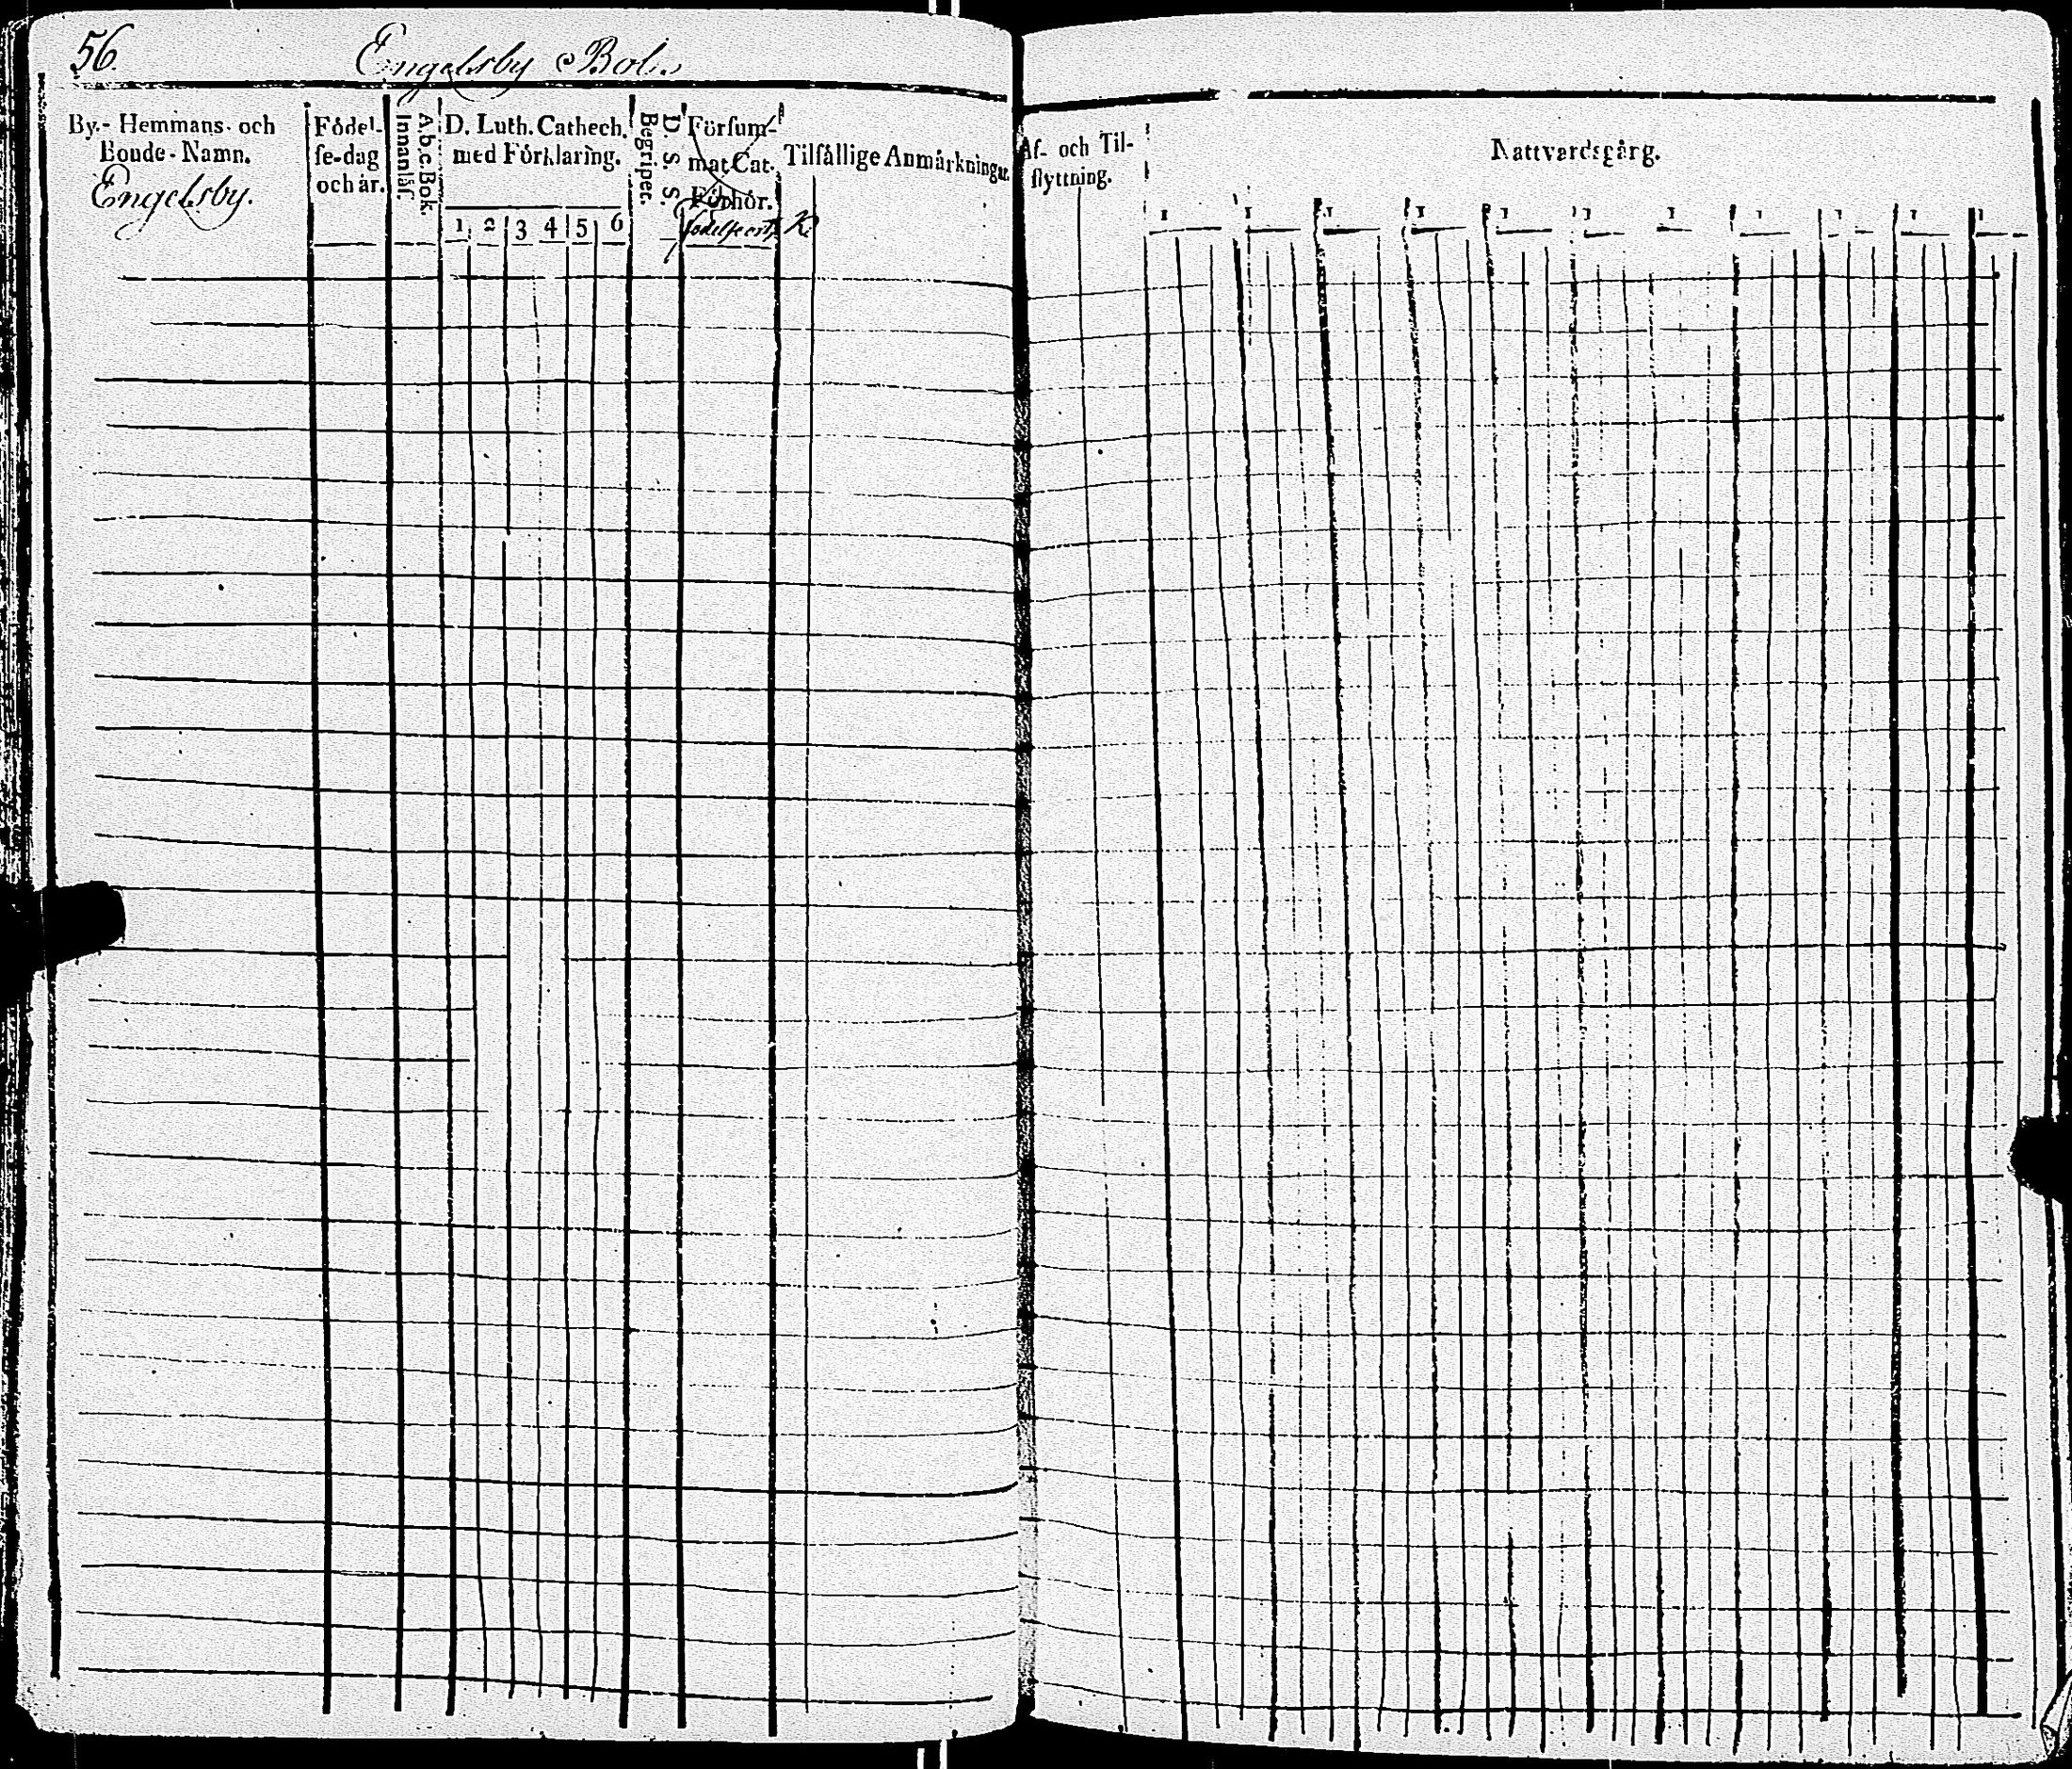 56. Engelsby Bol.
By.- Hemmans- och
Bonde-Namn.
Engelsby.
Födel-
se-dag
och år.
Innanläs.
A.b.c.Bok.
D. Luth. Cathech.
med Förklaring.
1 2 3 4 5 6
Begriper.
D. S. S.
Försum-
mat Cat.
Förhör.
födelseort.
K.
Tilfällige Anmärkningar.
Af- och Til-
flyttning.
Nattvardsgång.
1 1 1 1 1 1 1 1 1 1 1